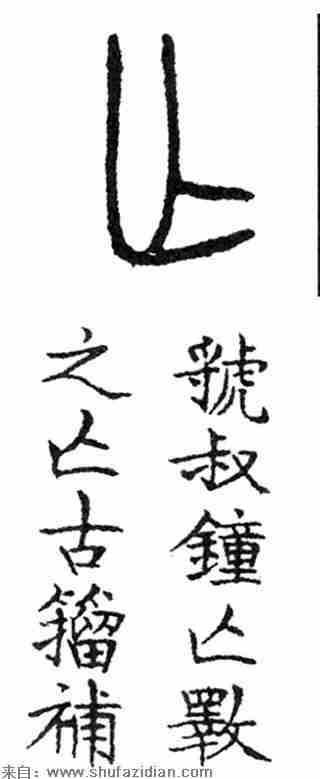 亾
虢叔鐘亾斁
之亾古籀補
来自：www.shufazidian.com